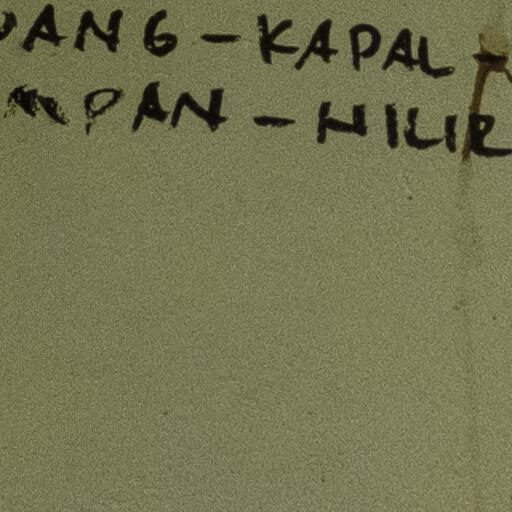 DANG - KAPAL -
MPAN - HILIR